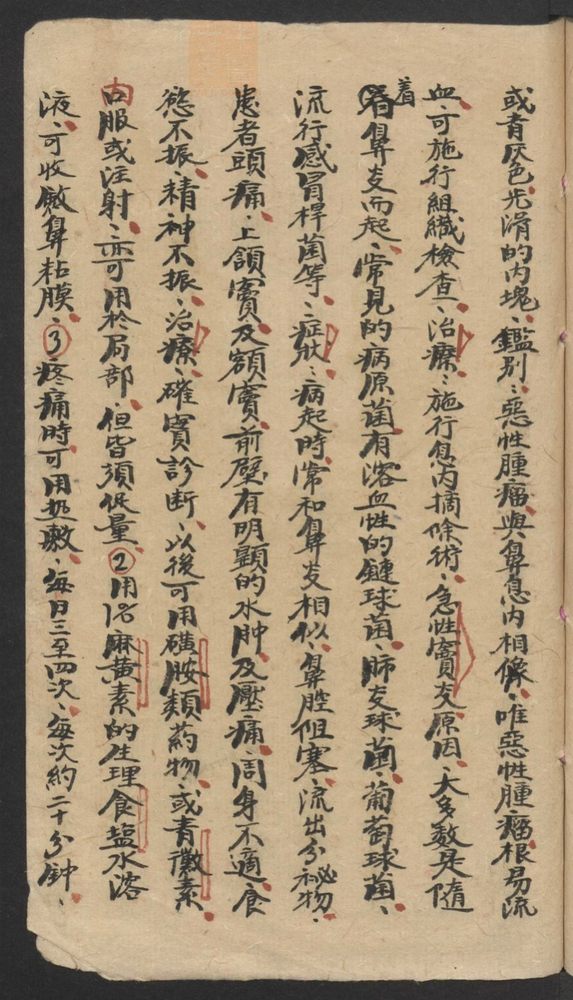 或青灰色光滑的肉塊、鑑别:惡性腫瘤與鼻息肉相像、唯惡性腫瘤根易流
血、可施行組織檢查、治療:施行息肉摘除術、急性竇炎原因、大多數是隨
着鼻炎而起、常見的病原菌有溶血性的鏈球菌、肺炎球菌、葡萄球菌、
流行感冒桿菌等、症狀:病起時常和鼻炎相似、鼻腔阻塞、流出分祕物、
患者頭痛、上頜竇及額竇前壁有明顯的水肿及壓痛、周身不適、食
慾不振、精神不振、治療、確實診断、以後可用磺胺類葯物、或青黴素
内口服或注射、亦可用於局部、但皆須低量②用1%麻黄素的生理食塩水溶
液、可收斂鼻粘膜、③疼痛時可用热敷、每日三至四次、每次約二十分钟、